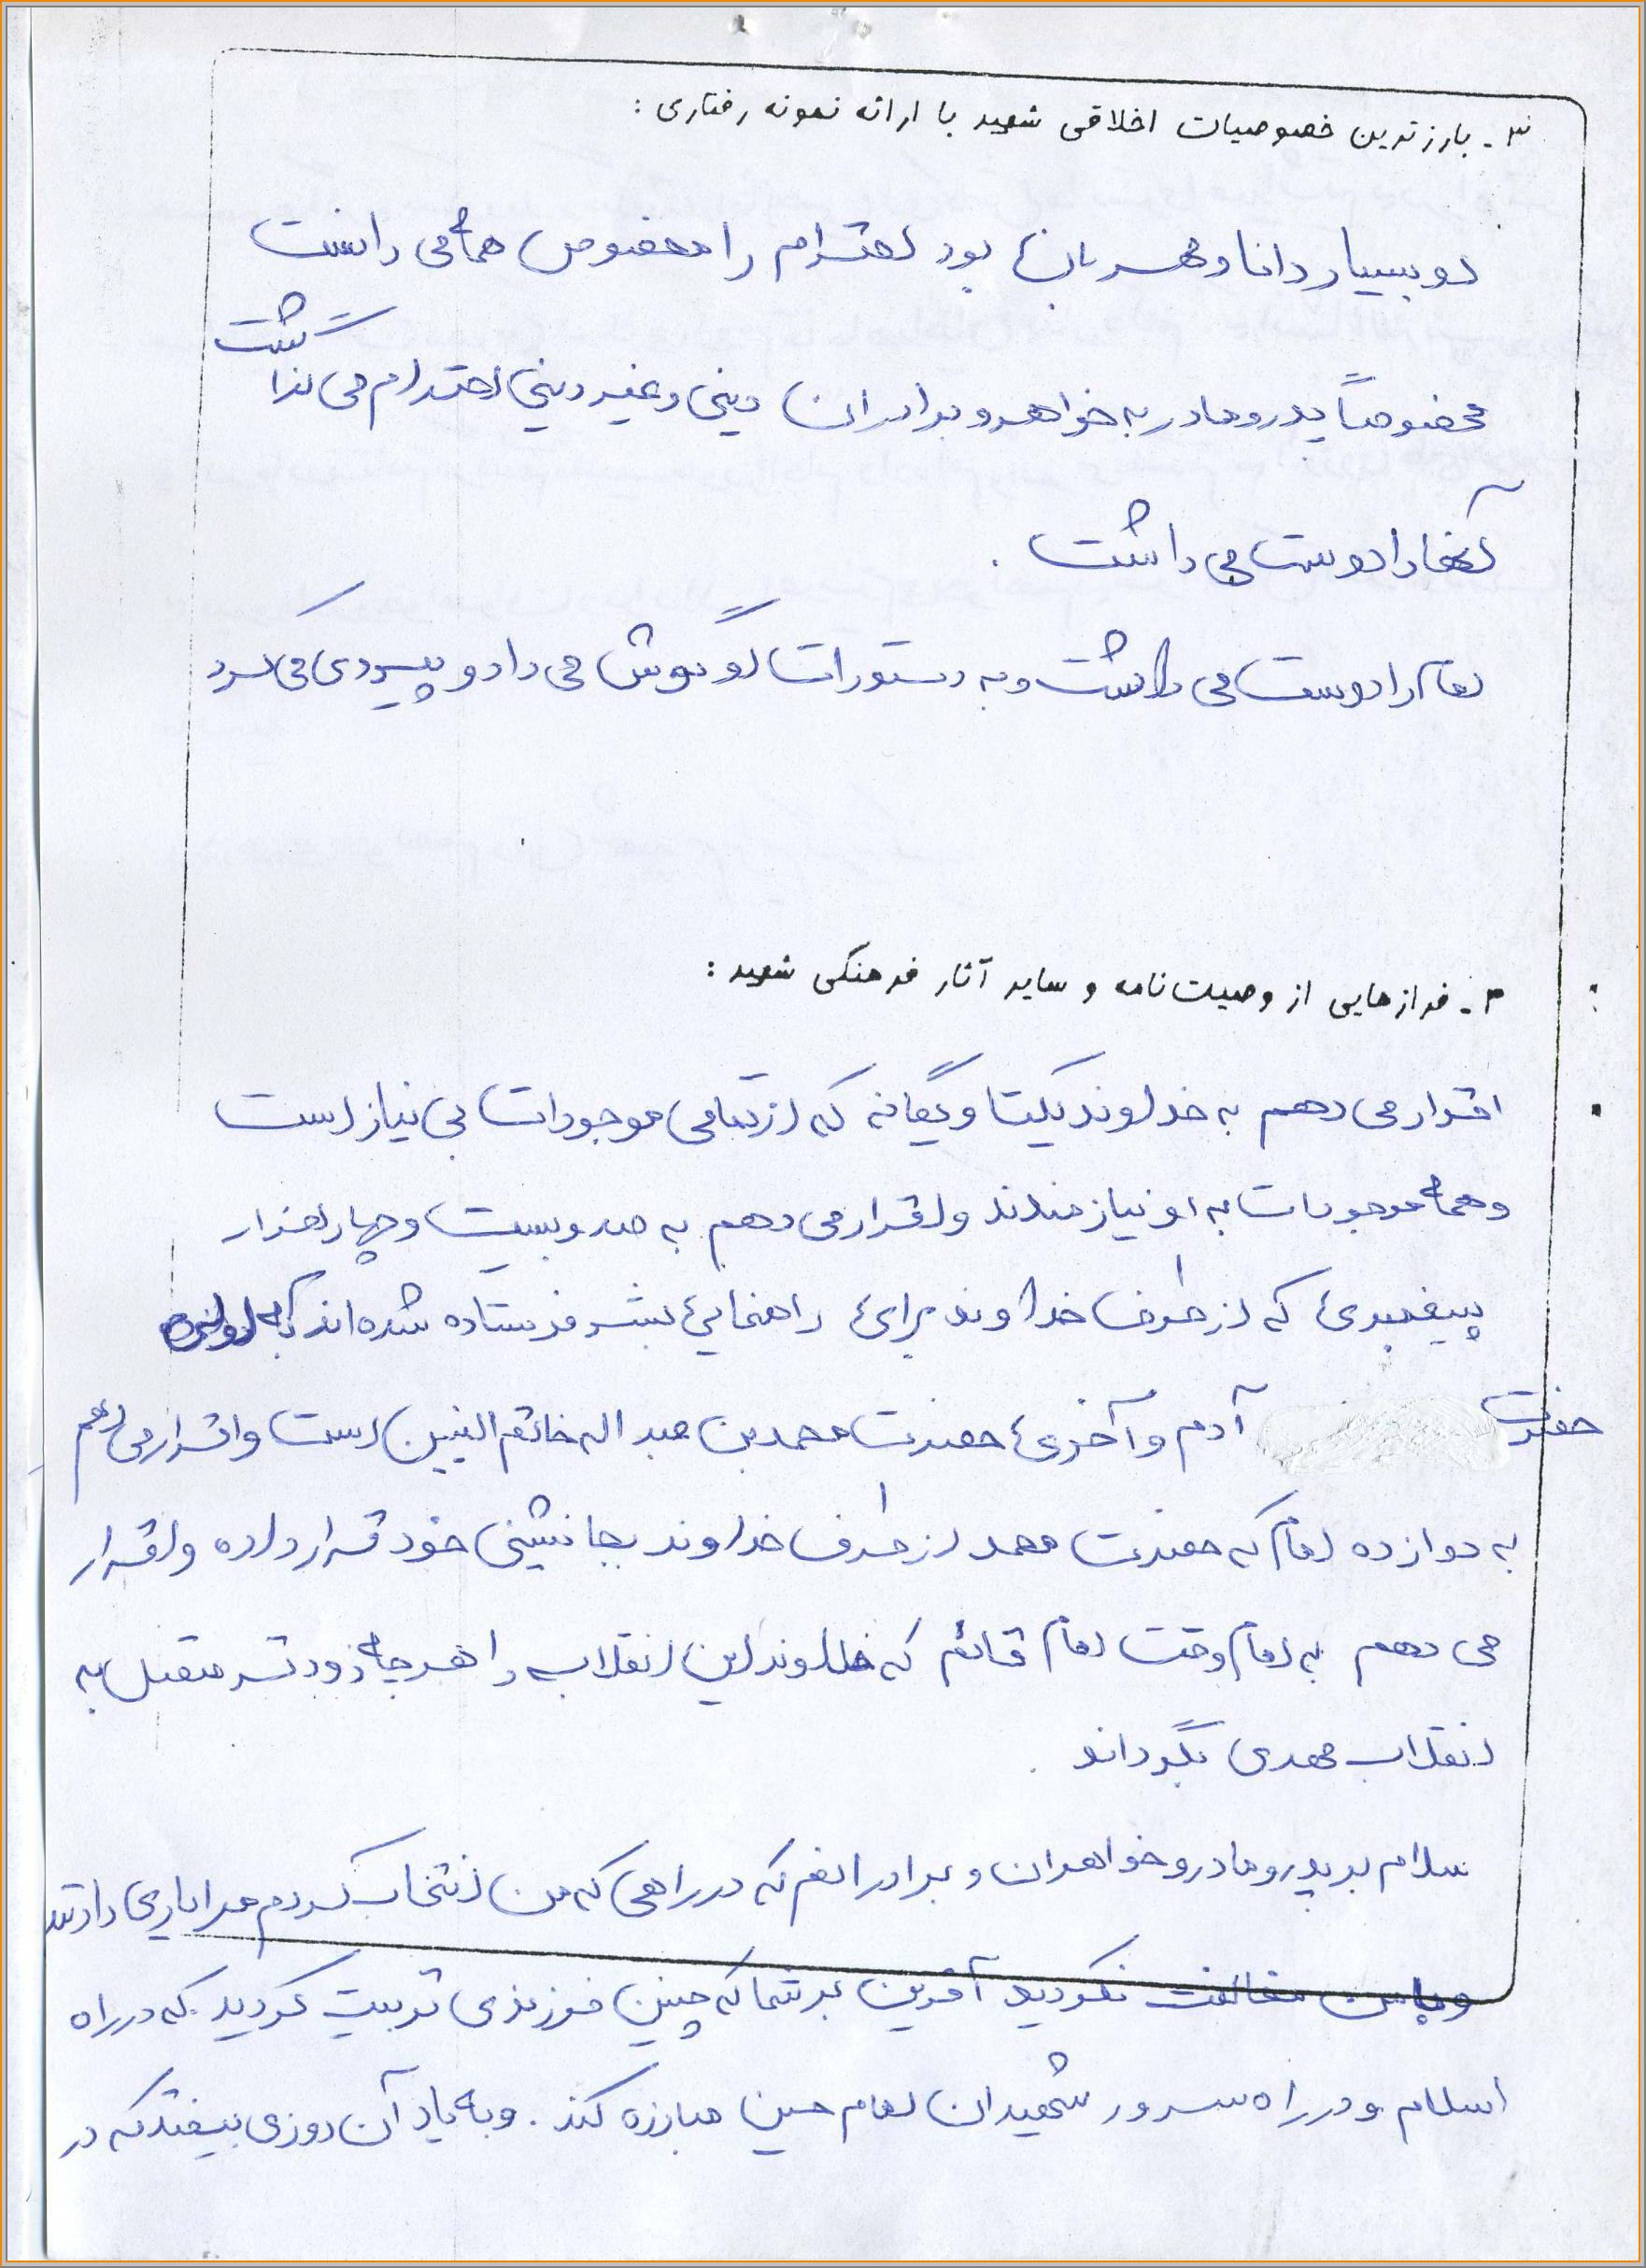 ۳- بارزترین خصوصیات اخلاقی شهید با ارائه نمونه رفتاری :
او بسیار دانا و مهربان بود احترام را مخصوص همه می دانست
مخصوصاً پدر و مادر به خواهر و برادران دینی و غیر دینی احترام می گذاشت
آنها را دوست می داشت .
امام را دوست می داشت و به دستورات او گوش می داد و پیروی می کرد
۴- فرازهایی از وصیت‌نامه و سایر آثار فرهنگی شهید :
اقرار می دهم به خداوند یکتا و یگانه که از تمامی موجودات بی نیاز است
و همه موجودات به او نیازمندند و اقرار می دهم به صد و بیست و چهار هزار
پیغمبری که از طرف خداوند برای راهنمایی بشر فرستاده شده اند که اولین
حضرت آدم و آخری حضرت محمد بن عبد اله خاتم النبین است و اقرار می دهم
به دوازده امام که حضرت محمد از طرف خداوند بجانشینی خود قرار داده و اقرار
می دهم به امام وقت امام قائم که خداوند این انقلاب را هر چه زودتر متصل به
انقلاب مهدی بگرداند
سلام بر پدر و مادر و خواهران و برادرانم که در راهی که من انتخاب کردم مرا یاری دادند
و با من مخالفت نکردید آفرین بر شما که چنین فرزندی تربیت کردید که در راه
اسلام و در راه سرور شهیدان امام حسین مبارزه کند . و به یاد آن روزی بیفتد که در